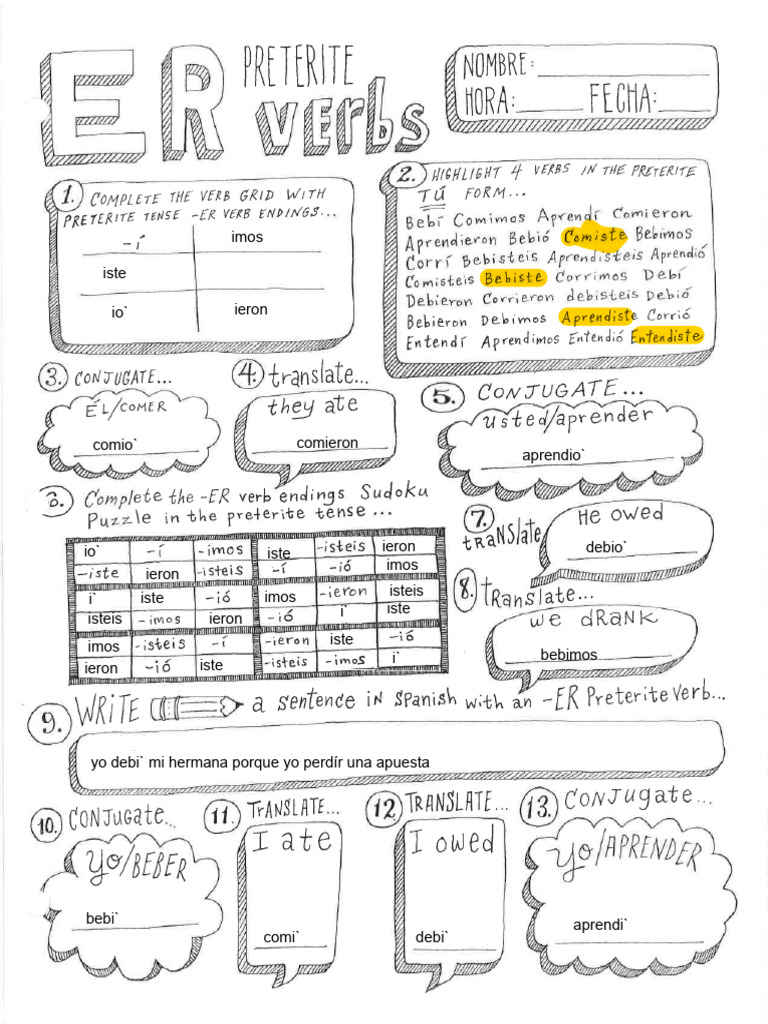 ER PRETERITE verbs
NOMBRE:
HORA: FECHA:
1. COMPLETE THE VERB GRID WITH
PRETERITE TENSE -ER VERB ENDINGS...
-í imos
iste
io` ieron
2. HIGHLIGHT 4 VERBS IN THE PRETERITE
TÚ FORM...
Bebí Comimos Aprendí Comieron
Aprendieron Bebió Comiste Bebimos
Corrí Bebisteis Aprendisteis Aprendió
Comisteis Bebiste Corrimos Debí
Debieron Corrieron debisteis Debió
Bebieron Debimos Aprendiste Corrió
Entendí Aprendimos Entendió Entendiste
3. CONJUGATE...
ÉL/COMER
comio`
4. translate...
they ate
comieron
5. CONJUGATE...
usted/aprender
aprendio`
6. Complete the -ER verb endings Sudoku
Puzzle in the preterite tense...
io` -í -imos iste -isteis ieron
-iste ieron -isteis -í -ió imos
i` iste -ió imos -ieron isteis
isteis -imos ieron -ió i` iste
imos -isteis -í -ieron iste -ió
ieron -ió iste -isteis -imos i`
7. TRANSLATE
He owed
debio`
8. Translate...
we drank
bebimos
9. WRITE a sentence in Spanish with an -ER Preterite Verb...
yo debi` mi hermana porque yo perdír una apuesta
10. CONJUGATE...
yo/BEBER
bebi`
11. TRANSLATE...
I ate
comi`
12. TRANSLATE...
I owed
debi`
13. CONJUGATE...
yo/APRENDER
aprendi`